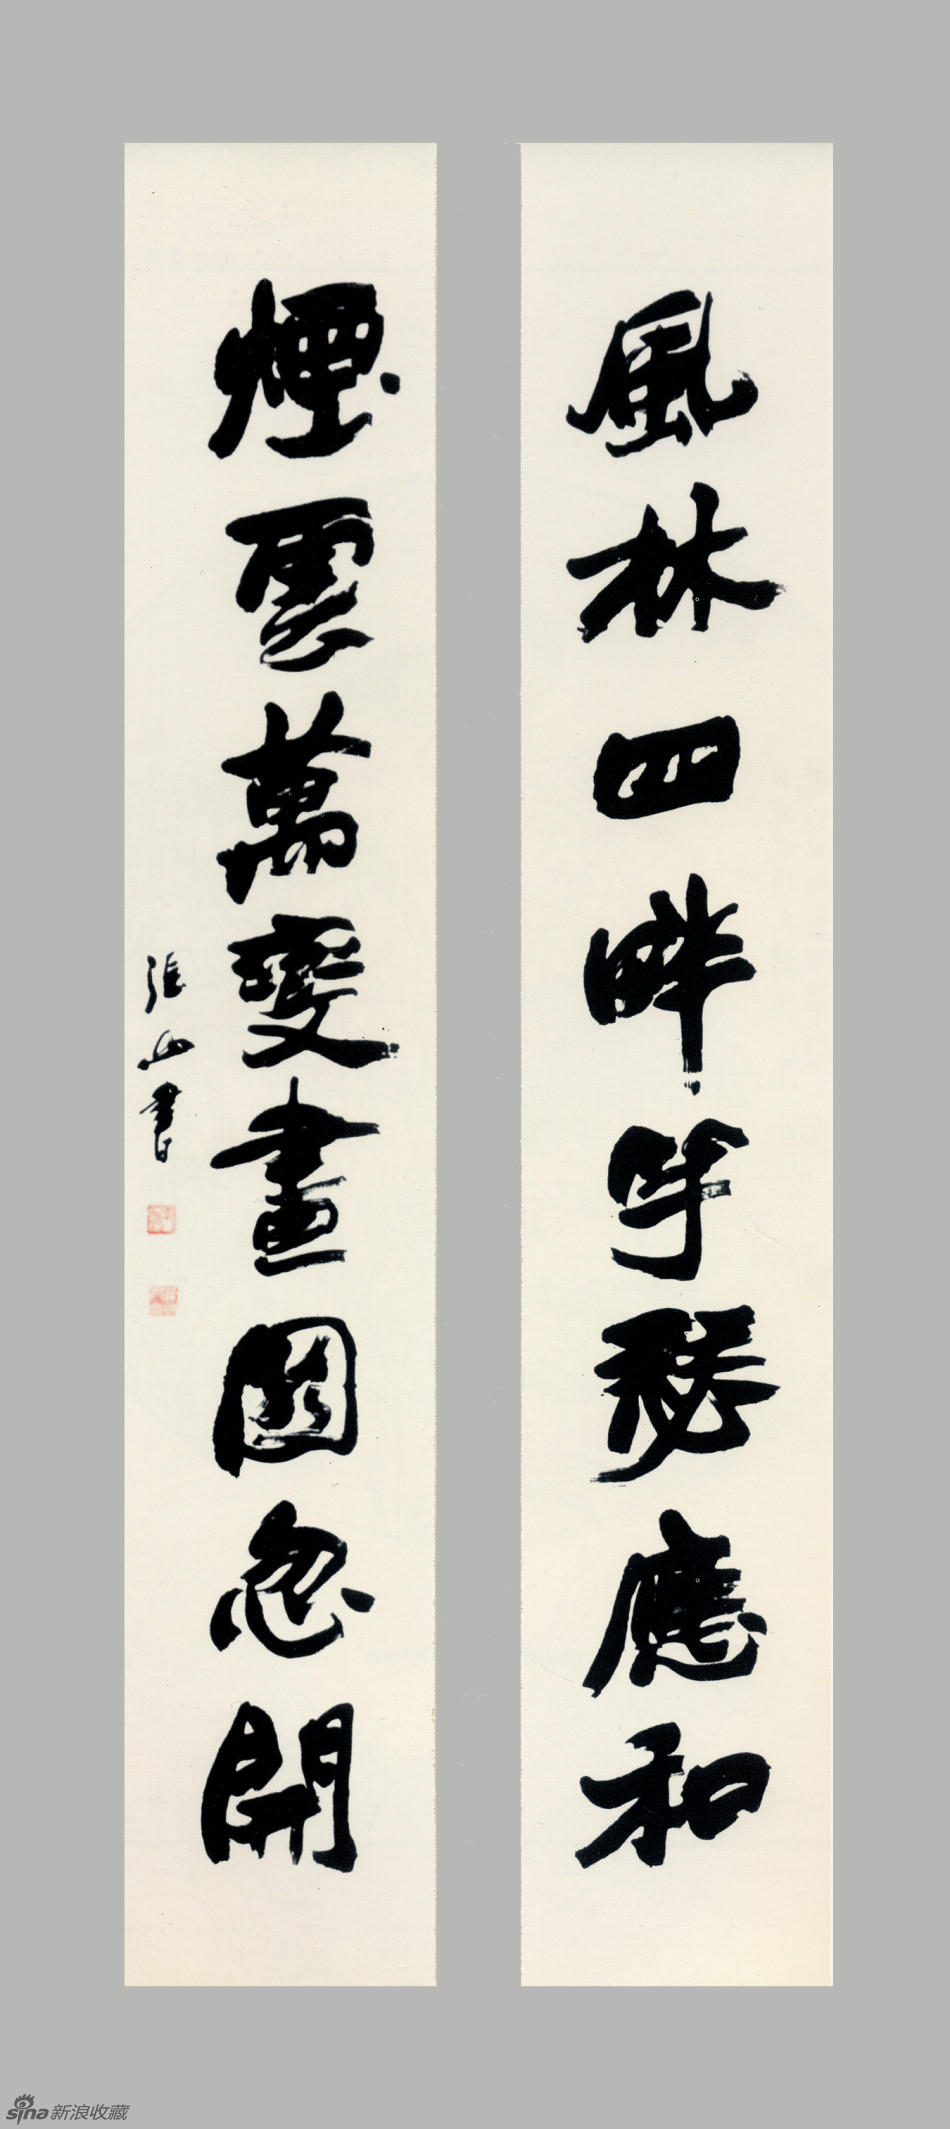 風林四畔竽瑟應和
煙雲萬變畫圖忽開
張山書
sina新浪收藏